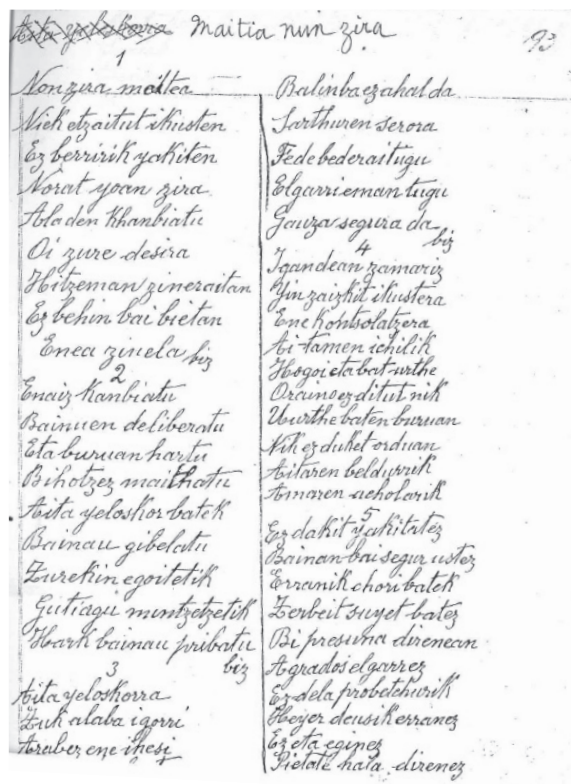 Aita yeloskorra Maitia nun zira
93
1
Non zira maitea
Nick etzaitut ikusten
Ez berririk yakiten
Norat yoan zira
Ala den khanbiatu
Oi zure desira
Hitzeman zineraitan
Ez behin bai bietan
Enea zinela biz
2
Enaiz kanbiatu
Bainuen deliberatu
Eta buruan hartu
Bihotzez maithatu
Aita yeloskor batek
Bainau gibelatu
Zurekin egoitetik
Gutiagu mintzetzetik
Hark bainau pribatu
biz
3
Aita yeloskorra
Zuk alaba igorri
Araber ene ihesi
Balinba ez ahal da
Sarthuren serora
Fede bedera itugu
Elgarri eman tugu
Gauza segura da
biz
4
Igandean zamariz
Yin zaizkit ikustera
Ene kontsolatzera
Ai-tamen ichilik
Hogoi eta bat urthe
Oraino ez ditut nik
Urthe baten buruan
Nik ez duket orduan
Aitaren beldurrik
Amaren acholarik
5
Ez dakit yakitatez
Bainan bai segur ustez
Erranik chori batek
Zerbeit suyet batez
Bi presuna direnean
Agrados elgarrez
Ez dela probetchurik
Heyer deusik erranez
Ez eta eginez
Pietate hala direnez